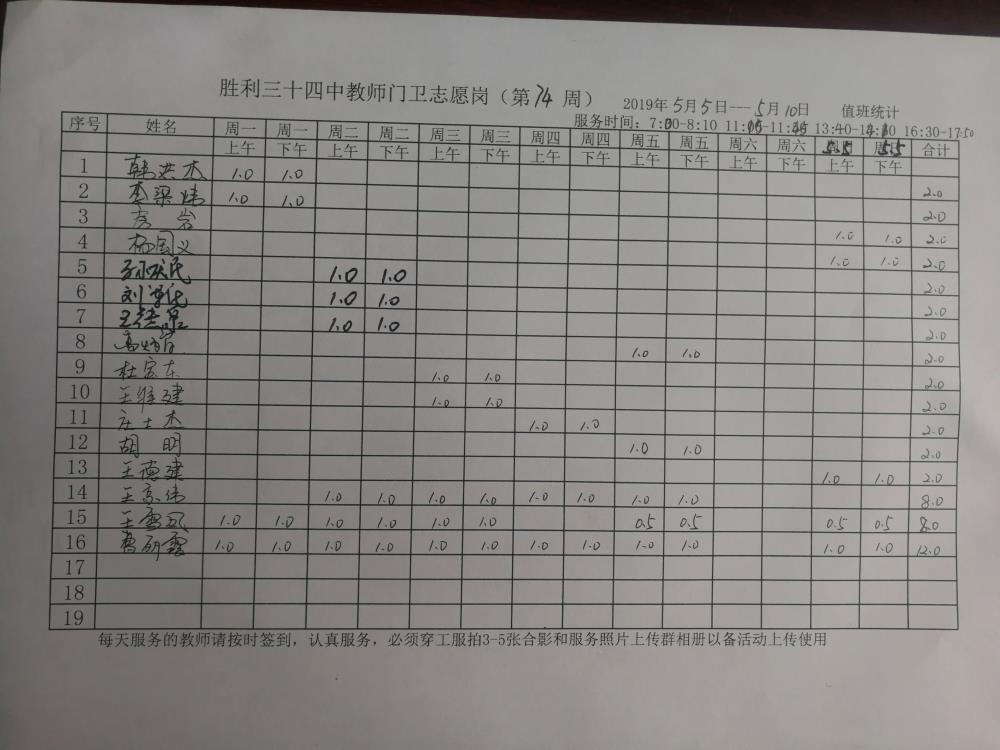 胜利三十四中教师门卫志愿岗（第74周）
2019年5月5日---5月10日 值班统计
服务时间：7:00-8:10 11:05-11:45 13:40-14:10 16:30-17:50
序号 姓名 周一 周一 周二 周二 周三 周三 周四 周四 周五 周五 周六 周六 5.5 5.5 合计
上午 下午 上午 下午 上午 下午 上午 下午 上午 下午 上午 下午 上午 下午
1 韩洪杰 1.0 1.0 2.0
2 李梁炜 1.0 1.0 2.0
3 岩 1.0 1.0 2.0
4 杨国义 1.0 1.0 2.0
5 孙庆民 1.0 1.0 2.0
6 刘 1.0 1.0 2.0
7 王 1.0 1.0 2.0
8 高 1.0 1.0 2.0
9 杜宏东 1.0 1.0 2.0
10 王维建 1.0 1.0 2.0
11 庄士杰 1.0 1.0 2.0
12 胡明 1.0 1.0 2.0
13 王德建 1.0 1.0 2.0
14 王京伟 1.0 1.0 1.0 1.0 1.0 1.0 1.0 1.0 8.0
15 王雪 1.0 1.0 1.0 1.0 1.0 1.0 0.5 0.5 0.5 0.5 8.0
16 曹研霞 1.0 1.0 1.0 1.0 1.0 1.0 1.0 1.0 1.0 1.0 1.0 1.0 12.0
17
18
19
每天服务的教师请按时签到，认真服务，必须穿工服拍3-5张合影和服务照片上传群相册以备活动上传使用